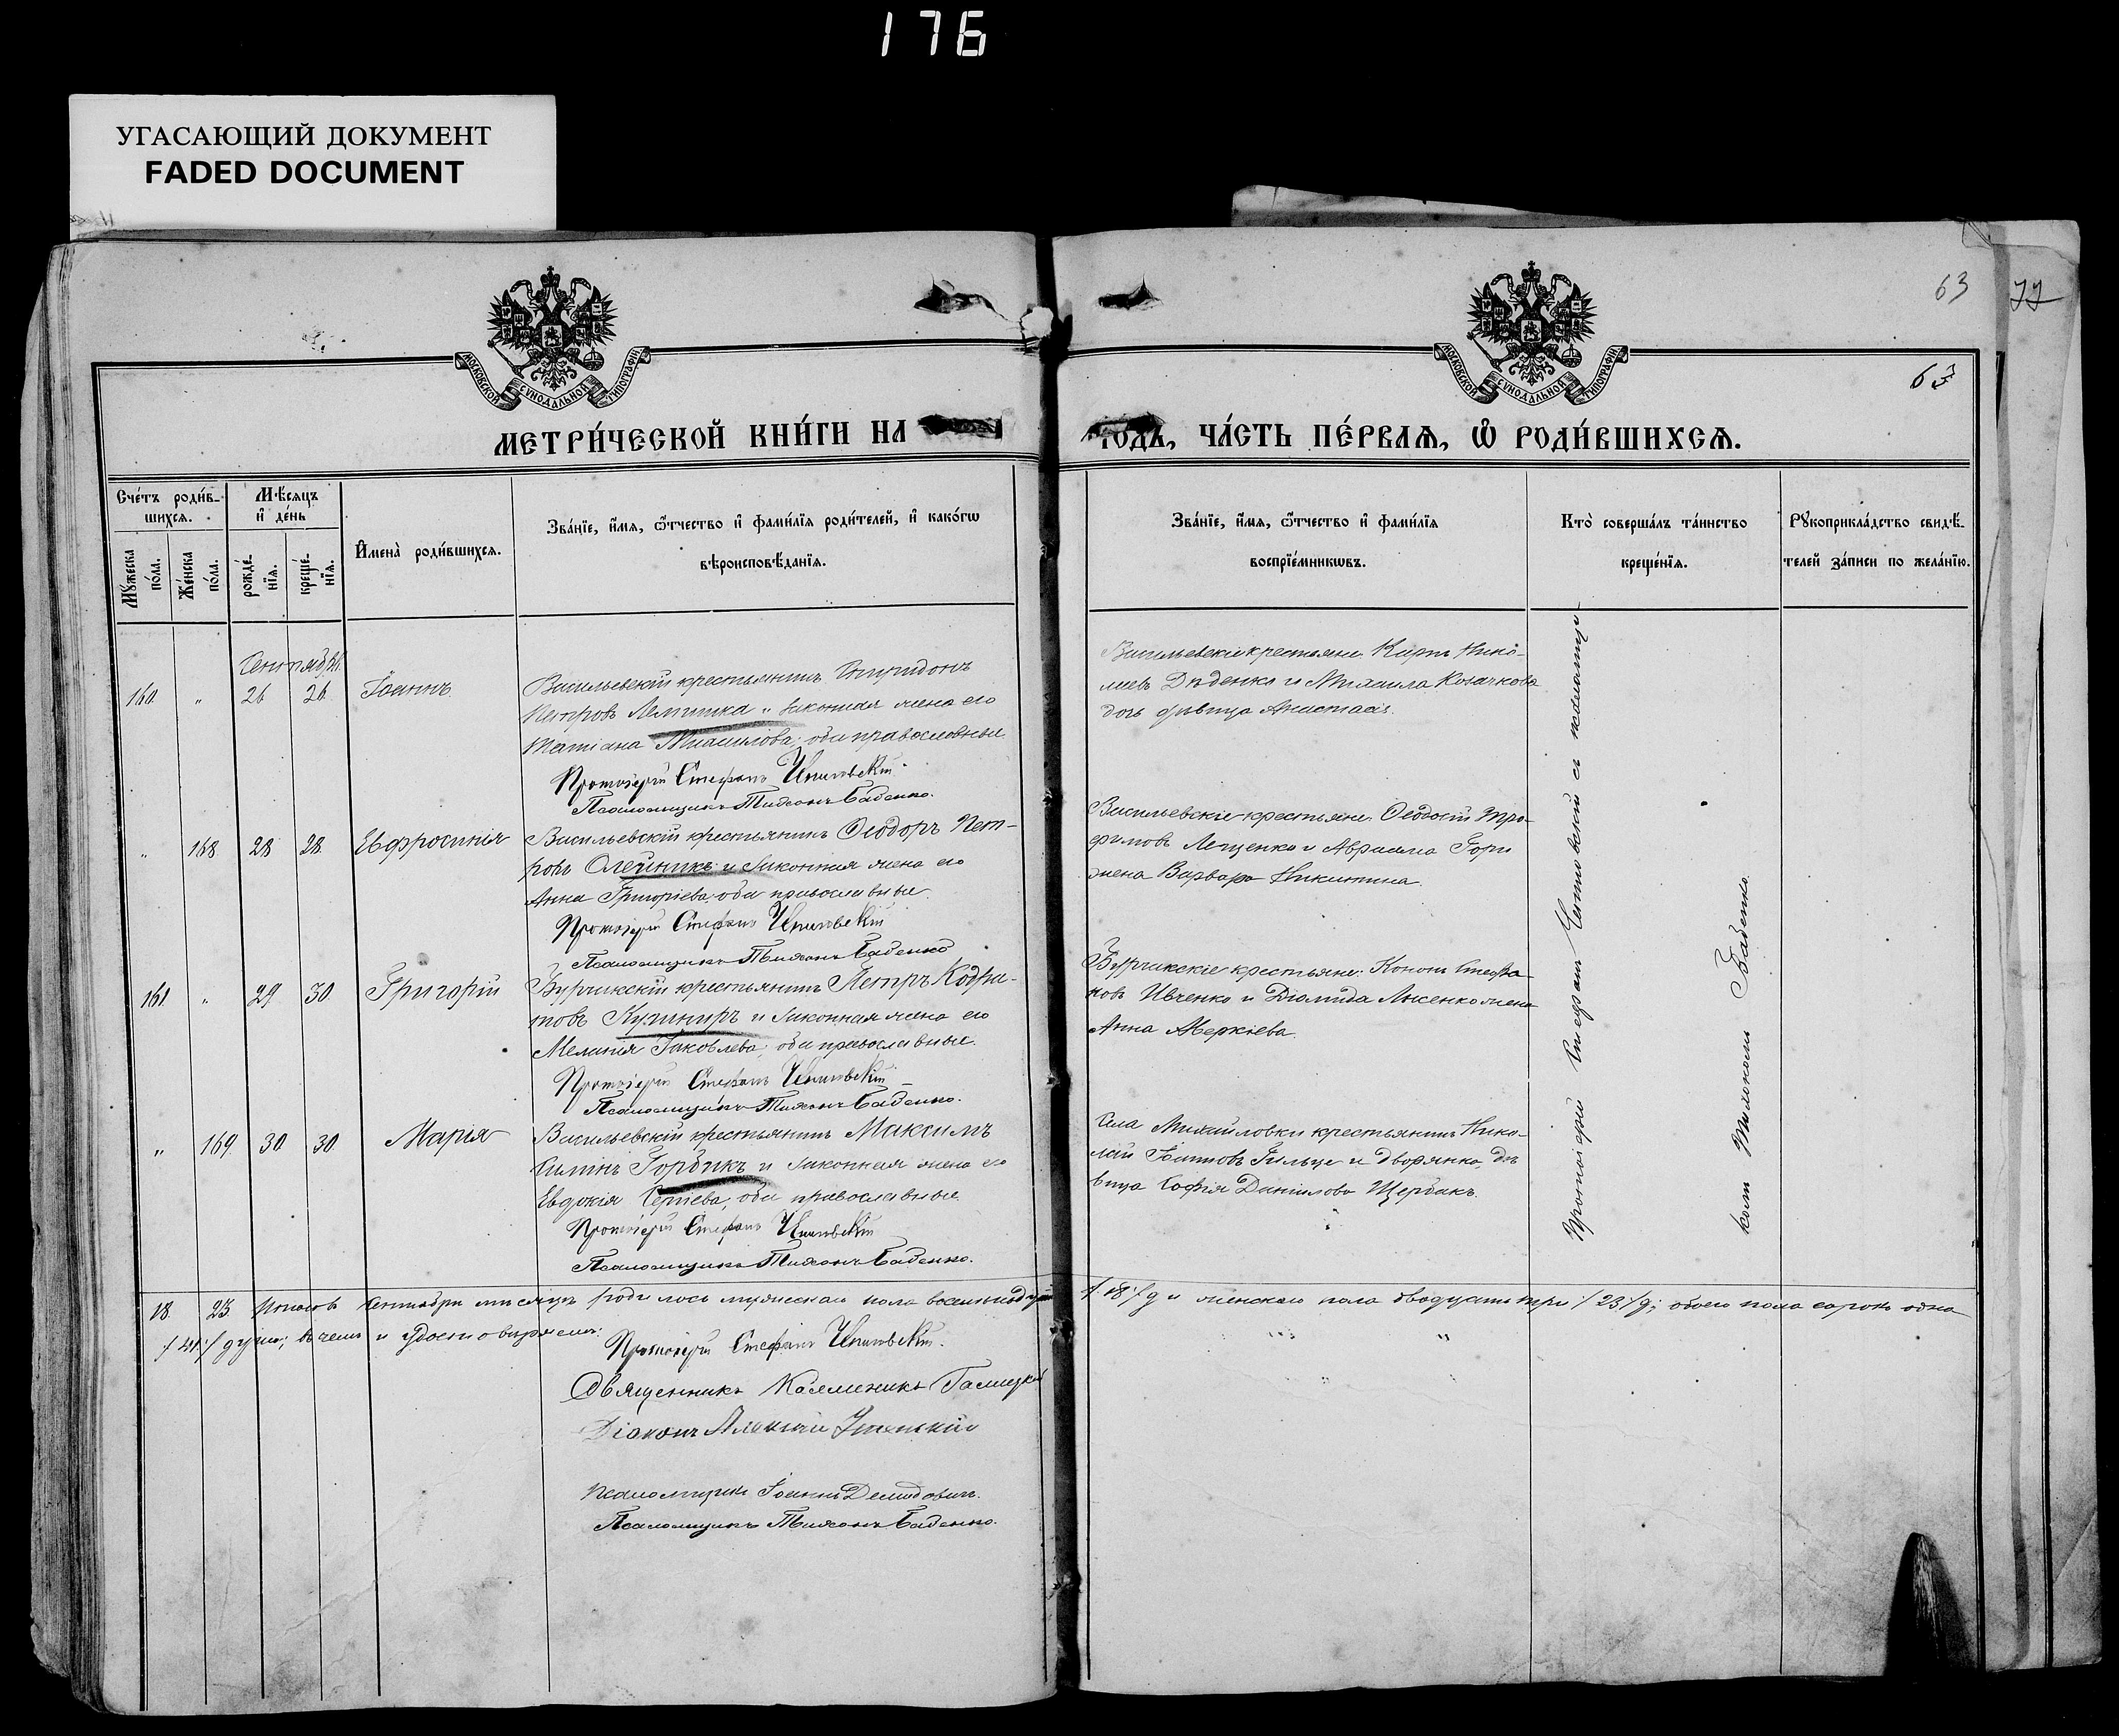 176
УГАСАЮЩИЙ ДОКУМЕНТ
FADED DOCUMENT
63
77
63
МОСКОВСКОЙ СУНОДАЛЬНОЙ ТИПОГРАФІИ
МОСКОВСКОЙ СУНОДАЛЬНОЙ ТИПОГРАФІИ
МЕТРИ́ЧЕСКОЙ КНИ́ГИ НА
ГОДЪ, ЧА́СТЬ ПЕ́РВАЯ, Ѡ҆ РОДИ́ВШИХСЯ.
Сче́тъ роди́в-
шихся.
Му́жеска
по́ла.
Же́нска
по́ла.
Мѣ́сяцъ
и҆ де́нь
рожде́-
нїя.
креще́-
нїя.
И҆мена̀ роди́вшихся.
Зва́нїе, и҆́мя, ѻ҆́тчество и҆ фами́лїя роди́телей, и҆ како́гѡ
вѣроисповѣ́данїя.
Зва́нїе, и҆́мя, ѻ҆́тчество и҆ фами́лїя
воспрїе́мникѡвъ.
Кто̀ соверша́лъ та́инство
креще́нїя.
Рꙋкоприкла́дство свидѣ́-
телей за́писи по жела́нїю.
Сентябрь
160 " 26 26 Іоаннъ
Васильевскій крестьянинъ Спиридонъ
Петровъ и законная жена его
Татіана Михаилова, оба православные
Протоіерей Стефанъ
Псаломщикъ Тихонъ Баденко.
Васильевскіе крестьяне Карпъ Нико-
лаевъ Дѣденко и Михаила Козачкова
дочь дѣвица Анастасія.
" 168 28 28 Евфросинія
Васильевскій крестьянинъ Ѳеодоръ Пет-
ровъ Олейникъ и законная жена его
Анна Григоріева, оба православные
Протоіерей Стефанъ
Псаломщикъ Тихонъ Баденко
Васильевскіе крестьяне: Ѳеодосій Тро-
фимовъ Лещенко и Авраама
жена Варвара Никитина.
161 " 29 30 Григорій
Бурчикскій крестьянинъ Петръ Кодра-
товъ Кушниръ и законная жена его
Меланія Іаковлева, оба православные.
Протоіерей Стефанъ
Псаломщикъ Тихонъ Баденко.
Бурчикскіе крестьяне: Кононъ Стефа-
новъ Ивченко и Діомида Лисенко жена
Анна Аверкіева.
" 169 30 30 Марія
Васильевскій крестьянинъ Максимъ
Горбикъ и законная жена его
Евдокія Сергіева, оба православные.
Протоіерей Стефанъ
Псаломщикъ Тихонъ Баденко.
Села Михайловки крестьянинъ Нико-
лай и дворянка, дѣ-
вица Софія Даніилова Щербакъ.
Протоіерей Стефанъ съ псаломщи-
комъ Тихономъ Баденко.
18 23 Итого въ Сентябрѣ мѣсяцѣ родилось мужескаго пола восемнадцать
/18/ д и женскаго пола двадцать три /23/ д; обоего пола сорокъ одна
/41/ душа; въ чемъ и удостовѣряемъ:
Протоіерей Стефанъ
Священникъ Галицкій
Діаконъ Алексій
Псаломщикъ Іоаннъ Демидовичъ.
Псаломщикъ Тихонъ Баденко.